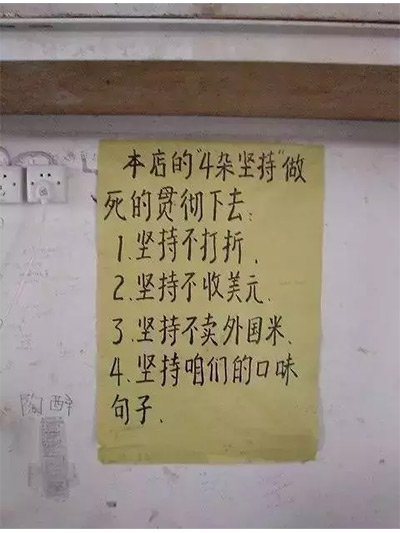 本店的"4杂坚持"做
死的贯彻下去:
1.坚持不打折.
2.坚持不收美元.
3.坚持不卖外国米.
4.坚持咱们的口味
句子.
陶醉